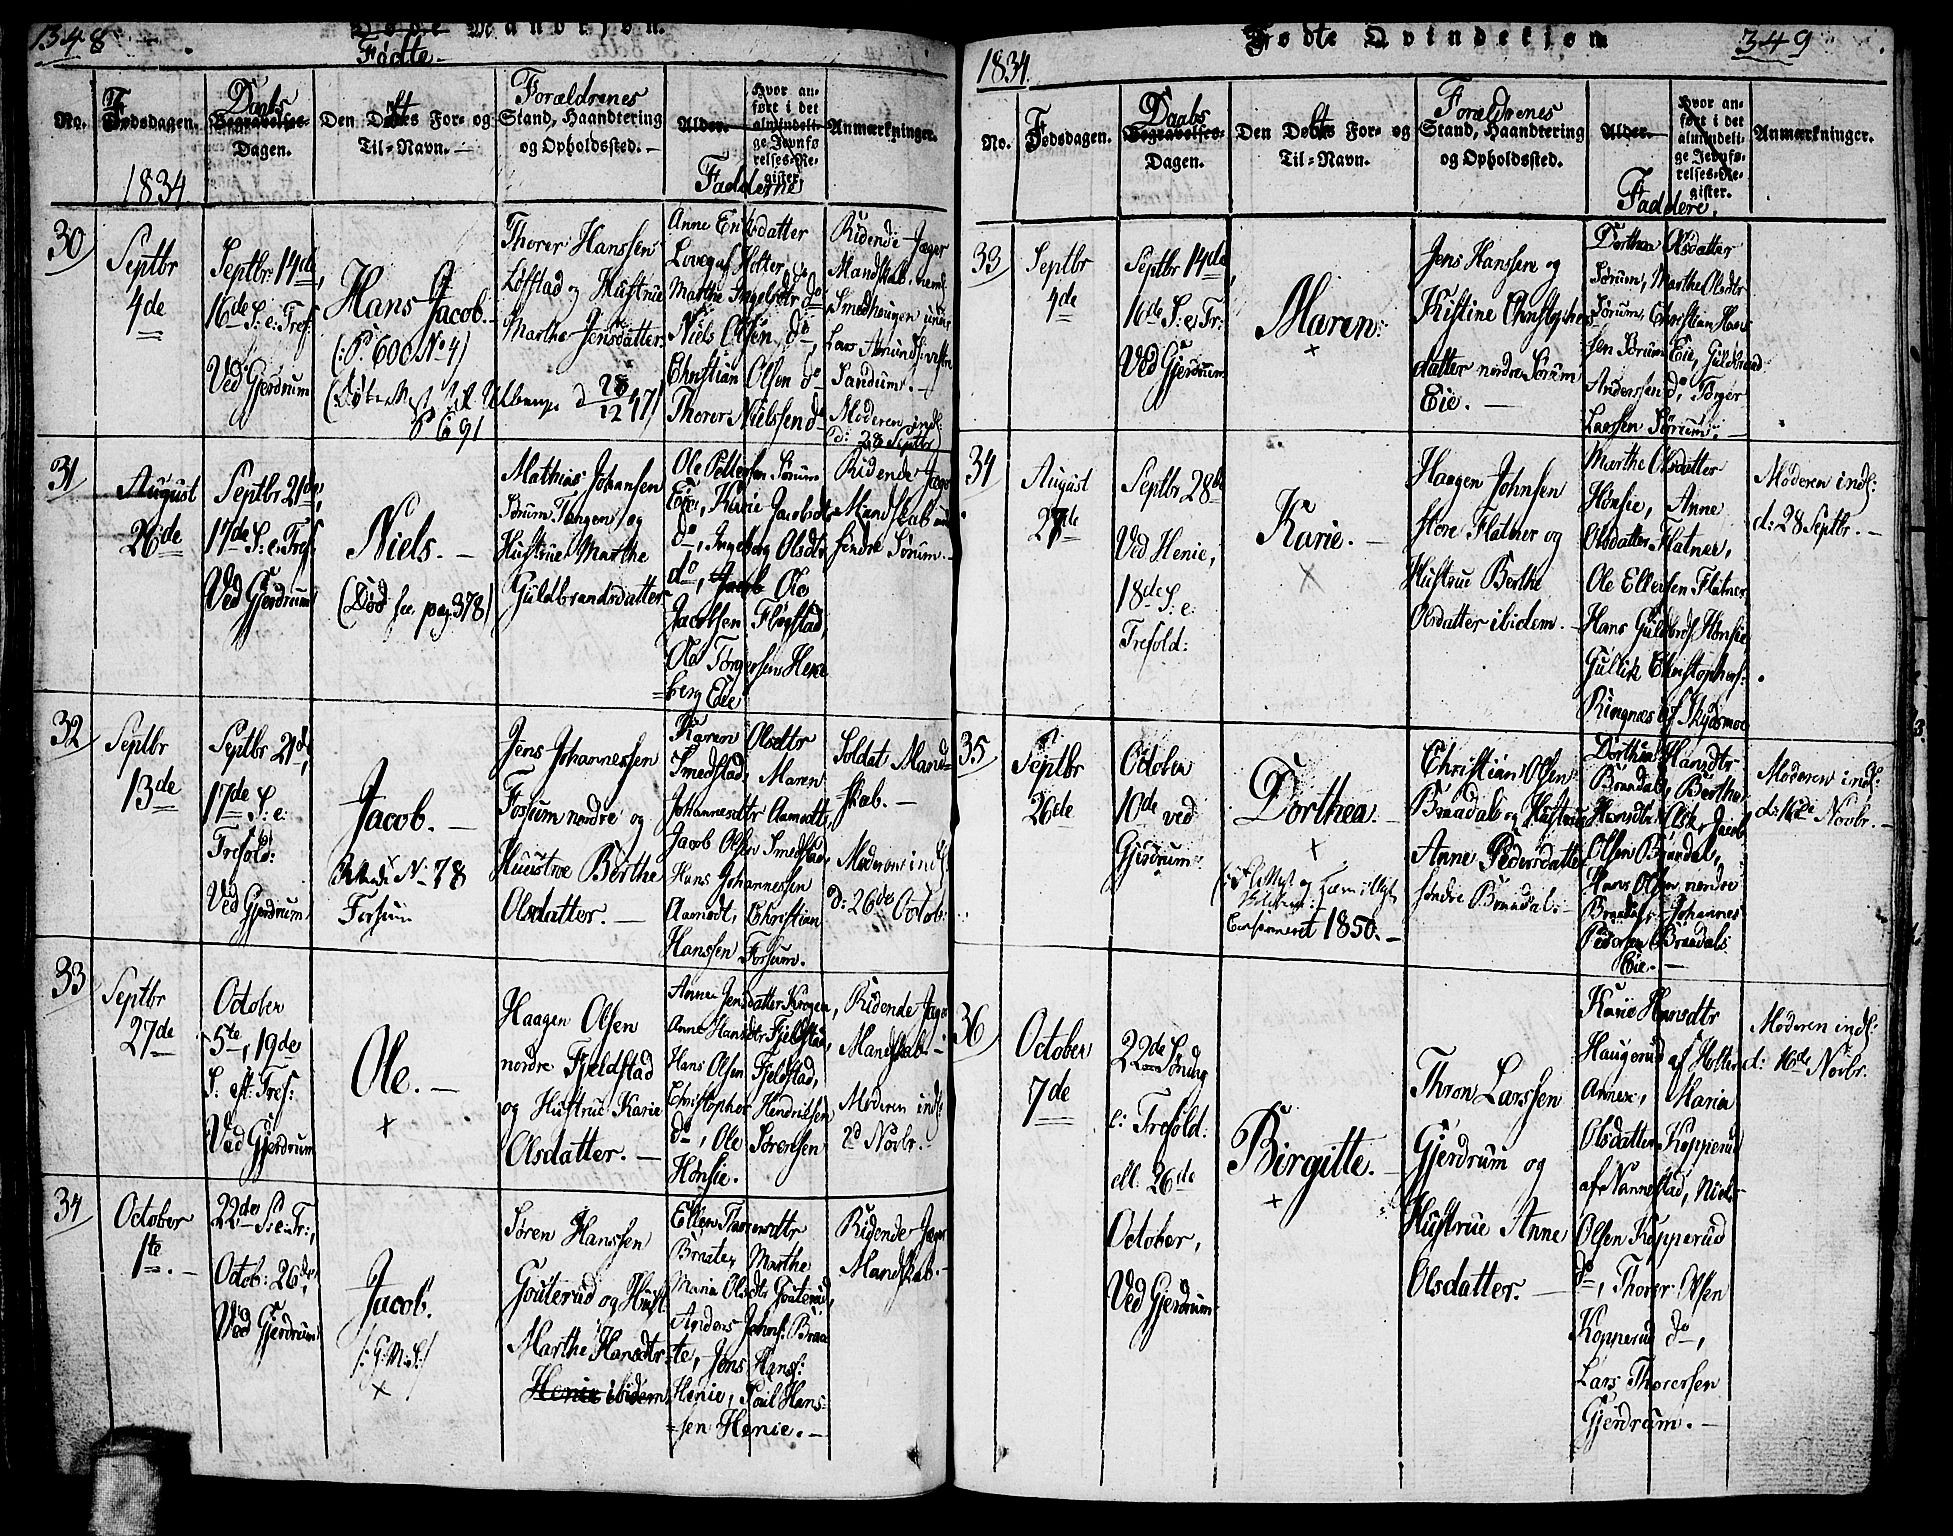 1348
Døde Mandkjøn.
Fødte
No.
Fødsdagen.
Daabs
Begravelses-
Dagen.
Den Døbtes For- og
Til-Navn.
Forældrenes
Stand, Haandtering
og Opholdssted.
Alder.
Hvor an-
ført i det
almindeli-
ge Jevnfø
relses-Re-
gister.
Fadderne
Anmærkninger.
1834
30
Septbr
4de
Septbr: 14de,
16de S: e: Tref:
Ved Gjerdrum
Hans Jacob.
(: P. 600 No 4)
28/12 47)
P 691
Thorer Hanssen
Løfstad og Hustrue
Marthe Jensdatter.
Anne Erikdatter
Lovegaf Holter,
Marthe Ingebrdtr do
Niels Olsen do,
Christian Olsen do
Thorer Nielssen do
Ridende Jæger
Mandskab, nemb
Smedhaugen under
Lars Amundf: vestre
Sandum. -
Moderen indl:
d: 28 Septbr)
31
August
26de
Septbr 21de,
17de S: e: Tref:
Ved Gjerdrum
Niels. -
(Død see pag 378)
Mathias Johansen
Sørum Tangen, og
Hustrue Marthe
Guldbrandsdatter
Ole Pettersen Sørum
Eie, Karie Jacobsdtr
do, Ingeborg Olsdtr
do, Jacob Ole
Jacobsen Fløgstad,
Ole Torgersen Hexe
=berg Eie
Ridende Jæger
Mandskab
søndre Sørum. -
32
Septbr
13de
Septbr 21de,
17de S: e:
Trefold:
Ved Gjerdrum
Jacob. -
No 78
Fossum
Jens Johannessen
Fossum nordre og
Huustroe Berthe
Olsdatter. -
Karen Olsdtr
Smedstad, Maren
Johannesdtr Aamodt,
Jacob Olsen Smedstad
Hans Johannessen
Aamodt, Christian
Hanssen Fossum.
Soldat Mand=
skab. -
Moderen indl:
d: 26de Octob:
33
Septbr
27de
October
5te, 19de
S. eft: Tref:
Ved Gjerdrum
Ole. -
+
Haagen Olsen
nordre Fjeldstad
og Hustrue Karie
Olsdatter. -
Anne Jensdatter Krogen,
Anne Hansdtr Fjeldstad,
Hans Olsen Fjeldstad,
Christopher Hendrilsen
do, Ole Sørensen
Hønsie.
Ridende Jæger
Mandskab -
Moderen indl:
2d Novbr. -
34
October
1te. -
22de S: e: Tr:,
Octob: 26de,
Ved Gjerdrum
Jacob.
x
Søren Hanssen
Gouterud og Hust:
Marthe Hansdtr
Henie ibidem
Ellen Thorersdtr
Braate, Marthe
Maria Olsdtr Gouterud,
Anders Johns: Braa
=te, Jens Hans:
Henie, Poul Hans=
=sen Henie. -
Ridende Jæger
Mandskab. -
Fødte Qvindekjøn
349
1834.
No.
Fødsdagen.
Daabs
Begravelses-
Dagen.
Den Døbtes For- og
Til-Navn.
Forældrenes
Stand, Haandtering
og Opholdssted.
Alder.
Hvor an-
ført i det
almindeli-
ge Jevnfø-
relses-Re-
gister.
Faddere.
Anmærkninger.
33
Septbr
4de
Septbr 14de
16de S: e: Tr:
Ved Gjerdrum
Maren.
+
Jens Hanssen og
Kistine Christophers
datter nordre Sørum
Eie. -
Dorthea Olsdatter
Sørum, Marthe Olsdtr
Sørum, Christian Hans
sen Sørum Eie, Guldbrand
Anderssen do, Torger
Larssen Sørum. -
34
August
27de
Septbr 28de
Ved Henie,
18de S: e:
Trefold:
Karie. -
x
Haagen Johnsen
store Flatner og
Hustrue Berthe
Olsdatter ibidem. -
Marthe Olsdatter
Hønsie, Anne
Olsdatter Flatner,
Ole Ellersen Flatner
Hans Guldbrs: Hønsie
Gullik Christophers:
Ringnæs af Skydsmoe
Moderen indl:
d: 28 Septbr. -
35
Septbr
26de
October
10de ved
Gjerdrum
Dorthea. -
+
Confirmeret 1850. -
Christian Olsen
Braadal og Hustrue
Anne Pedersdatter
søndre Braadal. -
Dorthea Hansdtr
Braadal, Berthe
Hansdtr Olstr Jacob
Olsen Braadal,
Hans Olsen nordre
Braadal, Johannes
Pedersen Braadals
Eie. -
Moderen indl:
d: 16de Novbr. -
36
October
7de
22de Sønng
e: Trefold:
ell. 26de
October,
Ved Gjerdrum
Birgitte. -
+
Thron Larssen
Gjerdrum og
Hustrue Anne
Olsdatter. -
Karie Hansdtr
Haugerud af Holter
Annex, Maria
Olsdatter Kopperud
af Nannestad, Niels
Olsen Kopperud
do, Thorer Olsen
Kopperud do,
Lars Thorersen
Gjerdrum. -
Moderen indl:
d: 16de Novbr.